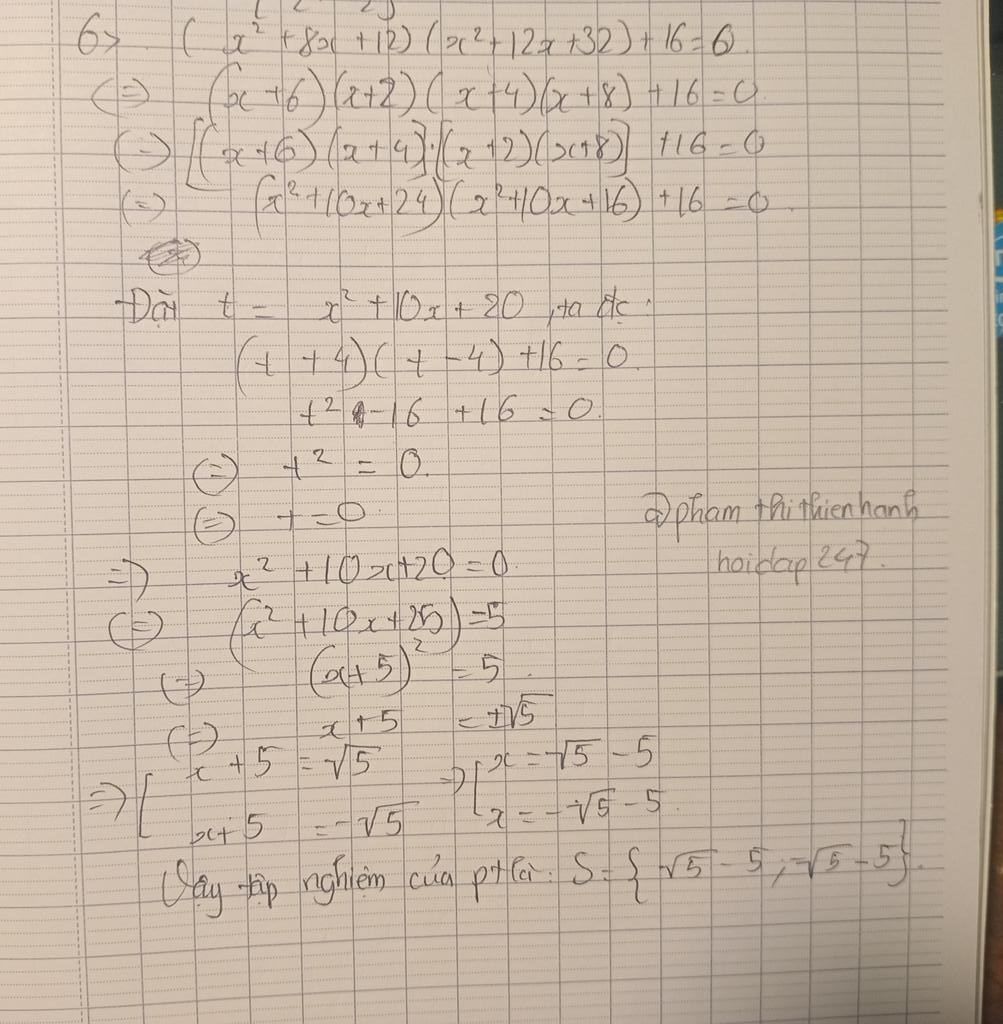 6> ( x² + 8x + 12) (x² + 12x + 32) + 16 = 0
(=) (x + 6)(x + 2)(x + 4)(x + 8) + 16 = 0
(=) [(x + 6)(x + 4].[(x + 2)(x + 8)] + 16 = 0
(=) (x² + 10x + 24)(x² + 10x + 16) + 16 = 0.
Đặt t = x² + 10x + 20, ta đc:
(t + 4)(t - 4) + 16 = 0.
t² - 16 + 16 = 0.
(=) t² = 0.
(=) t = 0
@phamthithienhanh
hoidap247.
=> x² + 10x + 20 = 0.
(=) (x² + 10x + 25) = 5
(=) (x + 5)² = 5.
(=) x + 5 = ±√5
=> [ x + 5 = √5 => [ x = √5 - 5
x + 5 = -√5 x = -√5 - 5.
Vậy tập nghiệm của pt là: S = { √5 - 5 ; -√5 - 5}.